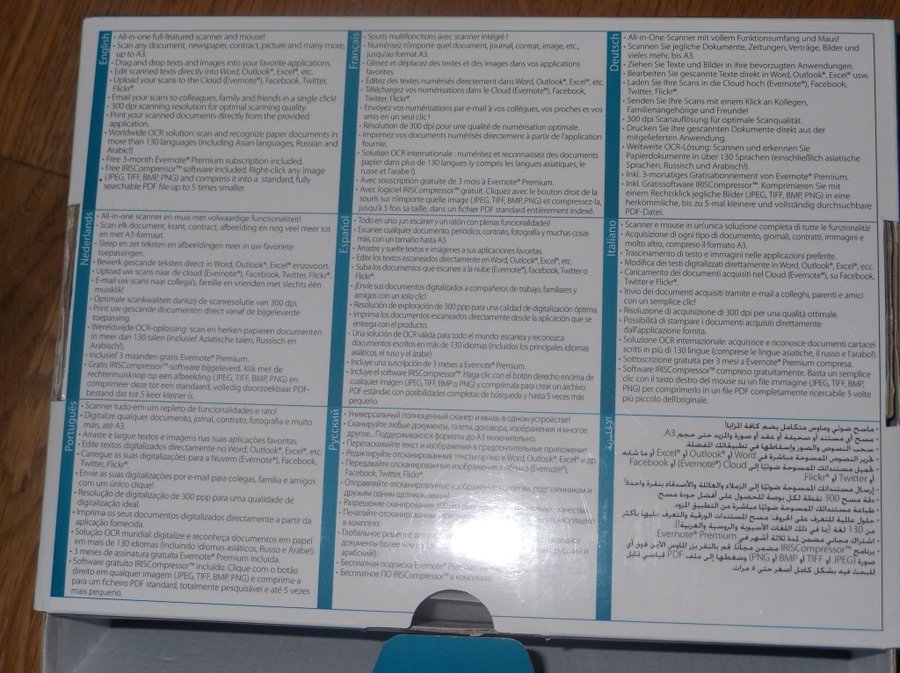 English
• All-in-one full-featured scanner and mouse!
• Scan any document, newspaper, contract, picture and many more,
up to A3.
• Drag and drop texts and images into your favorite applications.
• Edit scanned texts directly into Word, Outlook®, Excel® etc.
• Upload your scans to the Cloud (Evernote®), Facebook, Twitter,
Flickr®.
• Email your scans to colleagues, family and friends in a single click!
• 300 dpi scanning resolution for optimal scanning quality.
• Print your scanned documents directly from the provided
application.
• Worldwide OCR solution: scan and recognize paper documents in
more than 130 languages (including Asian languages, Russian and
Arabic!).
• Free 3-month Evernote® Premium subscription included.
• Free IRISCompressor™ software included. Right-click any image
(JPEG, TIFF, BMP, PNG) and compress it into a standard, fully
searchable PDF file up to 5 times smaller.
Français
• Souris multifonctions avec scanner intégré !
• Numérisez n'importe quel document, journal, contrat, image, etc.,
jusqu'au format A3.
• Glissez et déplacez des textes et des images dans vos applications
favorites.
• Éditez des textes numérisés directement dans Word, Outlook®, Excel®, etc.
• Téléchargez vos numérisations dans le Cloud (Evernote®), Facebook,
Twitter, Flickr®.
• Envoyez vos numérisations par e-mail à vos collègues, vos proches et vos
amis en un seul clic !
• Résolution de 300 dpi pour une qualité de numérisation optimale.
• Imprimez vos documents numérisés directement à partir de l'application
fournie.
• Solution OCR internationale : numérisez et reconnaissez des documents
papier dans plus de 130 langues (y compris les langues asiatiques, le
russe et l'arabe !).
• Avec souscription gratuite de 3 mois à Evernote® Premium.
• Avec logiciel IRISCompressor™ gratuit. Cliquez avec le bouton droit de la
souris sur n'importe quelle image (JPEG, TIFF, BMP, PNG) et compressez-la,
jusqu'à 5 fois sa taille, dans un fichier PDF standard entièrement indexé.
Deutsch
• All-in-One-Scanner mit vollem Funktionsumfang und Maus!
• Scannen Sie jegliche Dokumente, Zeitungen, Verträge, Bilder und
vieles mehr, bis A3.
• Ziehen Sie Texte und Bilder in Ihre bevorzugten Anwendungen.
• Bearbeiten Sie gescannte Texte direkt in Word, Outlook®, Excel® usw.
• Laden Sie Ihre Scans in die Cloud hoch (Evernote®), Facebook,
Twitter, Flickr®.
• Senden Sie Ihre Scans mit einem Klick an Kollegen,
Familienangehörige und Freunde!
• 300 dpi Scanauflösung für optimale Scanqualität.
• Drucken Sie Ihre gescannten Dokumente direkt aus der
mitgelieferten Anwendung.
• Weltweite OCR-Lösung: Scannen und erkennen Sie
Papierdokumente in über 130 Sprachen (einschließlich asiatische
Sprachen, Russisch und Arabisch!).
• Inkl. 3-monatiges Gratisabonnement von Evernote® Premium.
• Inkl. Gratissoftware IRISCompressor™. Komprimieren Sie mit
einem Rechtsklick jegliche Bilder (JPEG, TIFF, BMP, PNG) in eine
herkömmliche, bis zu 5-mal kleinere und vollständig durchsuchbare
PDF-Datei.
Nederlands
• All-in-one scanner en muis met volwaardige functionaliteit!
• Scan elk document, krant, contract, afbeelding en nog veel meer tot
en met A3-formaat.
• Sleep en zet teksten en afbeeldingen neer in uw favoriete
toepassingen.
• Bewerk gescande teksten direct in Word, Outlook®, Excel® enzovoort.
• Upload uw scans naar de cloud (Evernote®), Facebook, Twitter, Flickr®.
• E-mail uw scans naar collega's, familie en vrienden met slechts één
muisklik!
• Optimale scankwaliteit dankzij de scanresolutie van 300 dpi.
• Print uw gescande documenten direct vanaf de bijgeleverde
toepassing.
• Wereldwijde OCR-oplossing: scan en herken papieren documenten
in meer dan 130 talen (inclusief Aziatische talen, Russisch en
Arabisch!).
• Inclusief 3 maanden gratis Evernote® Premium.
• Gratis IRISCompressor™-software bijgeleverd. Klik met de
rechtermuisknop op een afbeelding (JPEG, TIFF, BMP, PNG) en
comprimeer deze tot een standaard, volledig doorzoekbaar PDF-
bestand dat tot 5 keer kleiner is.
Español
• Todo en uno: ¡un escáner y un ratón con plenas funcionalidades!
• Escanee cualquier documento, periódico, contrato, fotografía y muchas cosas
más, con un tamaño hasta A3.
• Arrastre y suelte textos e imágenes a sus aplicaciones favoritas.
• Edite los textos escaneados directamente en Word, Outlook®, Excel®, etc.
• Suba los documentos que escanee a la nube (Evernote®), Facebook, Twitter o
Flickr®.
• ¡Envíe sus documentos digitalizados a compañeros de trabajo, familiares y
amigos con un solo clic!
• Resolución de exploración de 300 ppp para una calidad de digitalización óptima.
• Imprima los documentos escaneados directamente desde la aplicación que se
entrega con el producto.
• Una solución de OCR válida para todo el mundo: escanea y reconozca
documentos escritos en más de 130 idiomas (incluidos los principales idiomas
asiáticos, el ruso y el árabe).
• Incluye una suscripción de 3 meses a Evernote® Premium.
• Incluye el software IRISCompressor™. Haga clic con el botón derecho encima de
cualquier imagen (JPEG, TIFF, BMP o PNG) y comprímala para crear un archivo
PDF estándar, con posibilidades completas de búsqueda y hasta 5 veces más
pequeño.
Italiano
• Scanner e mouse in un'unica soluzione completa di tutte le funzionalità!
• Acquisizione di ogni tipo di documento, giornali, contratti, immagini e
molto altro, compreso il formato A3.
• Trascinamento di testo e immagini nelle applicazioni preferite.
• Modifica dei testi digitalizzati direttamente in Word, Outlook®, Excel®, ecc.
• Caricamento dei documenti acquisiti nel Cloud (Evernote®), su Facebook,
Twitter e Flickr®.
• Invio dei documenti acquisiti tramite e-mail a colleghi, parenti e amici
con un semplice clic!
• Risoluzione di acquisizione di 300 dpi per una qualità ottimale.
• Possibilità di stampare i documenti acquisiti direttamente
dall'applicazione fornita.
• Soluzione OCR internazionale: acquisisce e riconosce documenti cartacei
scritti in più di 130 lingue (comprese le lingue asiatiche, il russo e l'arabo!).
• Sottoscrizione gratuita per 3 mesi a Evernote® Premium compresa.
• Software IRISCompressor™ compreso gratuitamente. Basta un semplice
clic con il tasto destro del mouse su un file immagine (JPEG, TIFF, BMP,
PNG) per comprimerlo in un file PDF completamente ricercabile 5 volte
più piccolo dell'originale.
Português
• Scanner tudo-em-um repleto de funcionalidades e rato!
• Digitalize qualquer documento, jornal, contrato, fotografia e muito
mais, até A3.
• Arraste e largue textos e imagens nas suas aplicações favoritas.
• Edite textos digitalizados directamente no Word, Outlook®, Excel®, etc.
• Carregue as suas digitalizações para a Nuvem (Evernote®), Facebook,
Twitter, Flickr®.
• Envie as suas digitalizações por e-mail para colegas, família e amigos
com um único clique!
• Resolução de digitalização de 300 ppp para uma qualidade de
digitalização ideal.
• Imprima os seus documentos digitalizados directamente a partir da
aplicação fornecida.
• Solução OCR mundial: digitalize e reconheça documentos em papel
em mais de 130 idiomas (incluindo idiomas asiáticos, Russo e Árabe!).
• 3 meses de assinatura gratuita Evernote® Premium incluída.
• Software gratuito IRISCompressor™ incluído. Clique com o botão
direito em qualquer imagem (JPEG, TIFF, BMP, PNG) e comprima-a
para um ficheiro PDF standard, totalmente pesquisável e até 5 vezes
mais pequeno.
Русский
• Универсальный полноценный сканер и мышь в одном устройстве!
• Сканируйте любые документы, газеты, договора, изображения и многое
другое.. Поддерживаются форматы до A3 включительно.
• Перетаскивайте текст и изображения в предпочтительные приложения
• Редактируйте отсканированные тексты прямо в Word, Outlook®, Excel® и др.
• Передавайте отсканированные изображения в облако (Evernote®),
Facebook, Twitter, Flickr®.
• Отправляйте отсканированные изображения коллегам, родственникам и
друзьям одним щелчком мыши!
• Разрешение сканирования 300 качество
• Печатайте отсканированные
в комплект.
• Глобальное решение для
документы более чем
арабский!).
• Бесплатная подписка Evernote® Premium на
• Бесплатное ПО IRISCompressor™ в комплекте.
الإنجليزية
• ماسح ضوئي وماوس متكامل يضم كافة المزايا!
• مسح أي مستند أو صحيفة أو عقد أو صورة والمزيد حتى حجم A3.
• سحب النصوص والصور وإسقاطها في تطبيقاتك المفضلة.
• تحرير النصوص الممسوحة مباشرة في Word أو Outlook® أو Excel® أو ما شابه.
• تحميل مستنداتك الممسوحة ضوئيًا إلى Cloud (Evernote®) أو Facebook
أو Twitter أو Flickr®.
• إرسال مستنداتك الممسوحة ضوئيًا إلى الزملاء والعائلة والأصدقاء بنقرة واحدة!
• دقة مسح 300 نقطة لكل بوصة للحصول على أفضل جودة مسح
• طباعة مستنداتك الممسوحة ضوئيًا مباشرة من التطبيق المزود
• حلول عالمية للتعرف على الحروف: مسح المستندات الورقية والتعرف عليها بأكثر
من 130 لغة (بما في ذلك اللغات الآسيوية والروسية والعربية!).
• اشتراك مجاني مضمن لمدة ثلاثة أشهر في Evernote® Premium.
• برنامج IRISCompressor™ مضمن مجانًا. قم بالنقر بزر الماوس الأيمن فوق أي
صورة (JPEG أو TIFF أو BMP أو PNG) وضغطها إلى ملف PDF قياسي قابل
للبحث فيه بشكل كامل أصغر حتى 5 مرات.